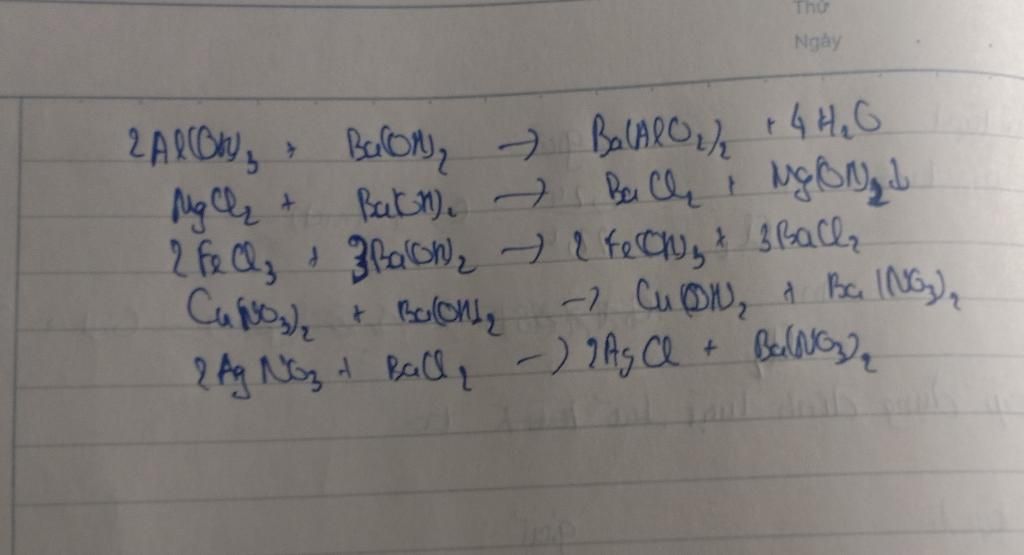 Thứ
Ngày
2Al(OH)₃ + Ba(OH)₂ → Ba(AlO₂)₂ + 4H₂O
MgCl₂ + Ba(OH)₂ → BaCl₂ + Mg(OH)₂↓
2FeCl₃ + 3Ba(OH)₂ → 2Fe(OH)₃ + 3BaCl₂
Cu(NO₃)₂ + Ba(OH)₂ → Cu(OH)₂ + Ba(NO₃)₂
2AgNO₃ + BaCl₂ → 2AgCl + Ba(NO₃)₂